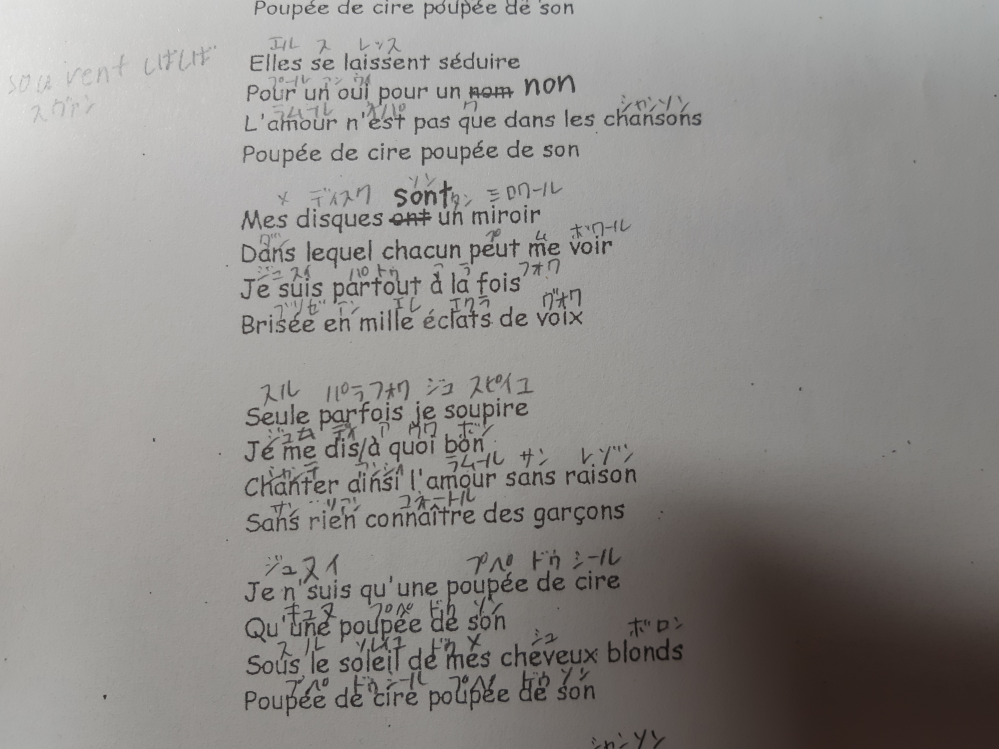 Poupée de cire poupée de son
エル ス レッス
Elles se laissent séduire
souvent しばしば
スヴァン
プール アン ウイ
Pour un oui pour un nom non
ラムール シャンソン
L'amour n'est pas que dans les chansons
Poupée de cire poupée de son
メ ディスク ソン タン ミロワール
Mes disques ont sont un miroir
ダン プ ム ボワール
Dans lequel chacun peut me voir
ジュ スイ パトゥ ア ラ フォワ
Je suis partout à la fois
ブリゼ アン エクラ ヴォワ
Brisée en mille éclats de voix
スル パラフォワ ジュ スピイユ
Seule parfois je soupire
ジュム ディ ア クワ ボン
Je me dis/à quoi bon
シャンテ アンシィ ラムール サン レゾン
Chanter ainsi l'amour sans raison
サン リアン コネートル
Sans rien connaître des garçons
ジュヌイ プペ ドゥ シール
Je n'suis qu'une poupée de cire
キュヌ プペ ドゥ ソン
Qu'une poupée de son
スル ソレイユ ドゥ メ シュ ボロン
Sous le soleil de mes cheveux blonds
プペ ドゥ シール プペ ドゥ ソン
Poupée de cire poupée de son
シャンソン